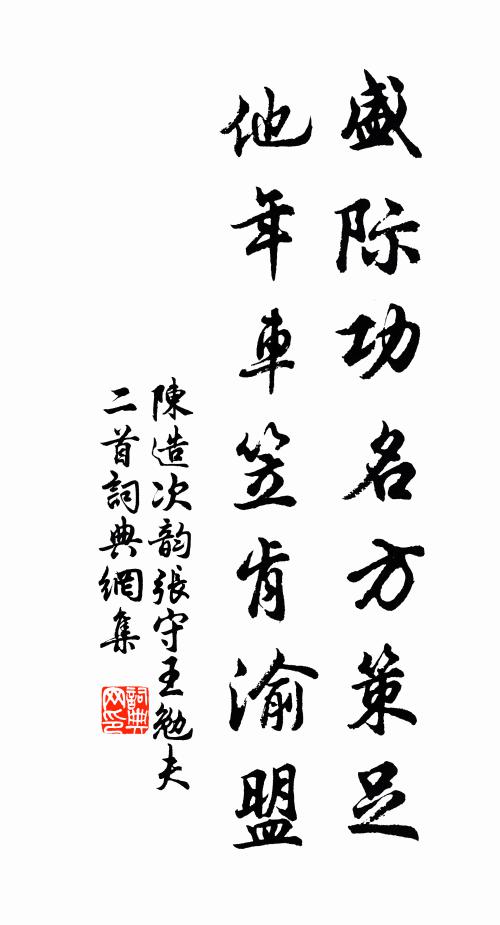 盛际功名方策足
他年車笠肯渝盟
陳造次韵張守王勉夫
二首詞典網集
詞典网印